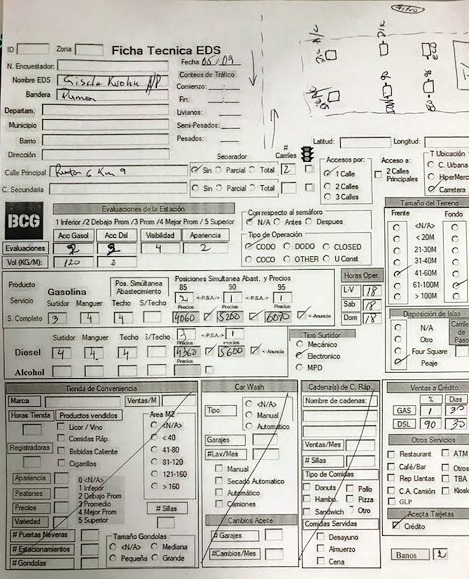 ID Zona Ficha Tecnica EDS
N. Encuestador: Fecha 05/09
Nombre EDS
Conteos de Tráfico
Bandera
Comienzo:
Departam. Fin:
Municipio Livianos:
Barrio Semi-Pesados:
Dirección Pesados:
Latitud: Longitud:
Separador # Carriles
Calle Principal Km 9 Sin Parcial Total 2
C. Secundaria Sin Parcial Total
Accesos por:
1 Calle
2 Calles
3 Calles
Acceso a:
2 Calles Principales
T Ubicación
C. Urbana
HiperMerc
Carretera
BCG
Evaluaciones de la Estación
1 Inferior /2 Debajo Prom /3 Prom /4 Mejor Prom / 5 Superior
Acc Gasol Acc Dsl Visibilidad Apariencia
Evaluaciones 2 2 4 2
Vol (KG/M): 120 2
Con respecto al semáforo
N/A Antes Despues
Tipo de Operación
CODO DODO CLOSED
COCO OTHER U Const
Tamaño del Terreno
Frente Fondo
<N/A>
< 20M
21-30M
31-40M
41-60M
61-100M
> 100M
Producto Gasolina
Pos. Simultanea Abastecimiento
Posiciones Simultanea Abast. y Precios
85 90 95
Servicio Surtidor Manguer Techo S/Techo
2 <-P.S.A.-> 1 1
Precios Precios Precios
S. Completo 3 4 4 4060 5200 6070 <-Anuncio
Surtidor Manguer Techo S/Techo
2 <-P.S.A.-> 1
Precios Precios
Diesel 4 4 4 4360 5600 <-Anuncia
Alcohol
Horas Oper.
L-V 18
Sab 18
Dom 18
Tipo Surtidor
Mecánico
Electronico
MPD
Disposición de Islas
N/A
Otro
Four Square
Peaje
Tienda de Conveniencia
Marca Ventas/M
Horas Tienda Productos vendidos
Licor / Vino
Comidas Ráp.
Bebidas Caliente
Cigarrillos
Registradoras
Area M2
<N/A>
< 40
41-80
81-120
121-160
> 160
Apariencia
Peatones
Precios
Variedad
0 <N/A>
1 Inferior
2 Debajo Prom
3 Promedio
4 Mejor Prom
5 Superior
# Sillas
# Puertas Neveras
# Estacionamientos
# Gondolas
Tamaño Gondolas
<N/A> Mediana
Pequeña Grande
Car Wash
Tipo
<N/A>
Manual
Automatico
Garajes
#Lav/Mes
Manual
Secado Automatico
Automático
Camiones
Cambios Aceite
# Garajes
#Cambios/Mes
Cadena(s) de C. Ráp.
Nombre de cadenas:
Ventas/Mes
# Sillas
Tipo de Comidas
Donuts Pollo
Hambu. Pizza
Sandwich Otro
Comidas Servidas
Desayuno
Almuerzo
Cena
Ventas a Crédito
% Dias
GAS 1 30
DSL 90 30
Otros Servicios
Restaurant ATM
Café/Bar Otros
Rep Llantas TBA
C.A. Camión Kiosk
GLP
Acepta Tarjetas
Crédito
Banos 2